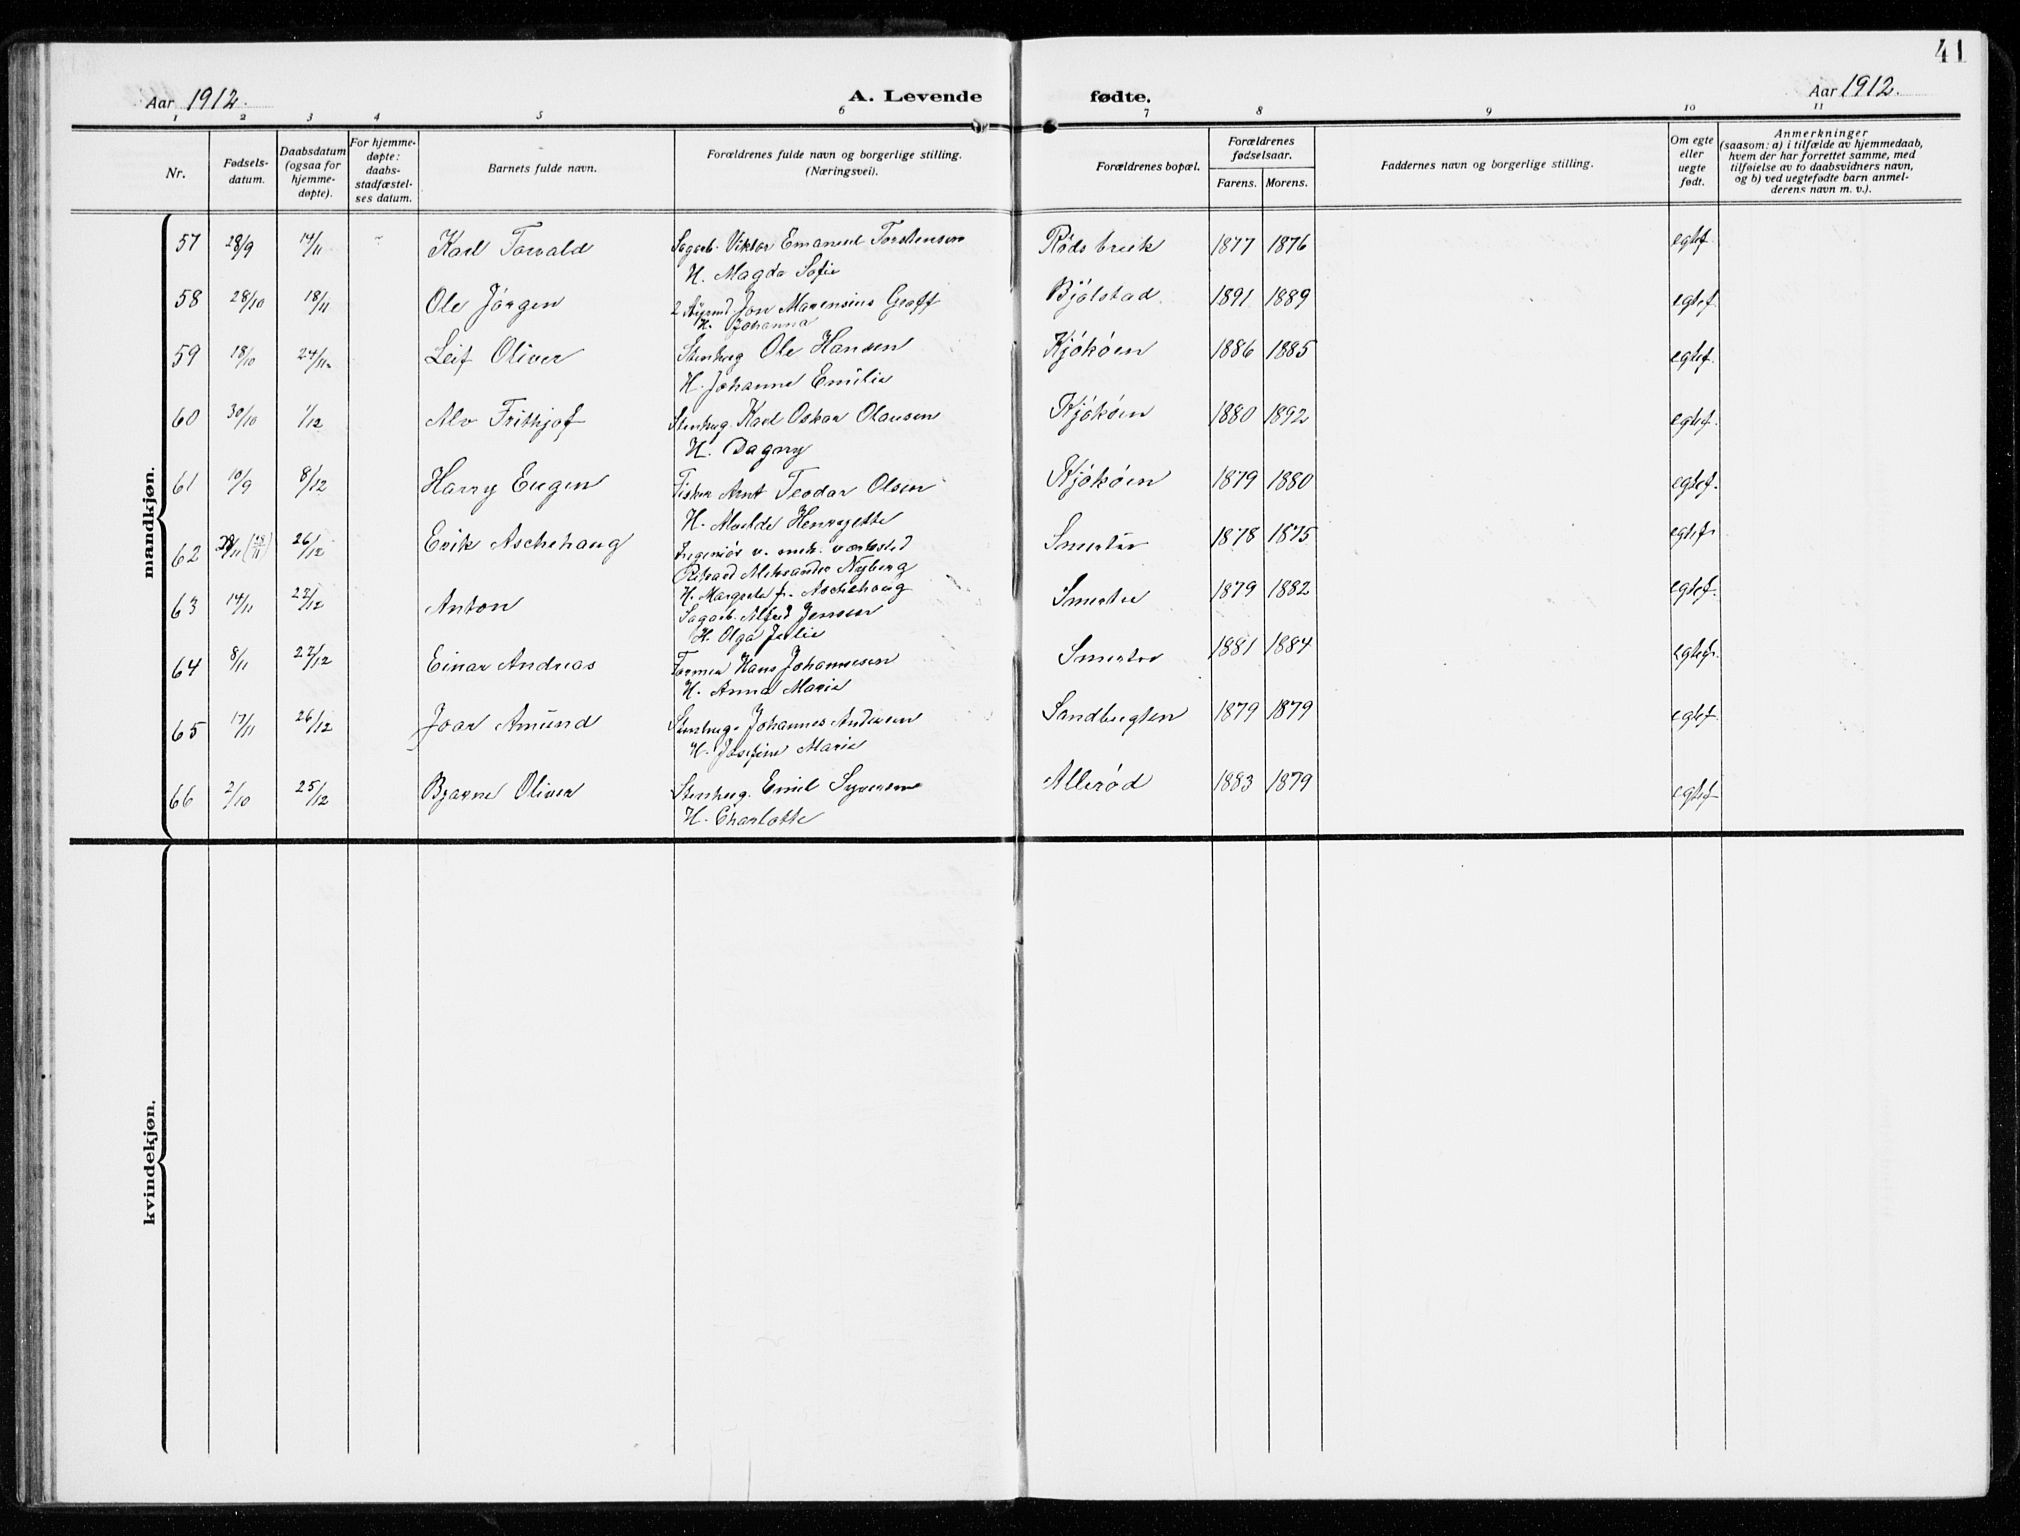 41
Aar 1912.
A. Levende fødte.
Aar 1912.
1 2 3 4 5 6 7 8 9 10 11
Nr.
Fødsels-
datum.
Daabsdatum
(ogsaa for
hjemme-
døpte).
For hjemme-
døpte:
daabs-
stadfæstel-
ses datum.
Barnets fulde navn.
Forældrenes fulde navn og borgerlige stilling.
(Næringsvei).
Forældrenes bopæl.
Forældrenes
fødselsaar.
Farens. Morens.
Faddernes navn og borgerlige stilling.
Om egte
eller
uegte
født.
Anmerkninger
(saasom: a) i tilfælde av hjemmedaab,
hvem der har forrettet samme, med
tilføielse av to daabsvidners navn,
og b) ved uegtefødte barn anmel-
derens navn m. v.).
mandkjøn.
57 28/9 14/11 Karl Torvald Sagarb. Viktor Emanuel Torstensen Røds bruk 1877 1876 egtef.
H. Magda Sofie
58 28/10 18/11 Ole Jørgen Jon Marensius Graff Bjølstad 1891 1889 egtef.
H. Johanna
59 18/10 24/11 Leif Oliver Stenhug Ole Hansen Kjøkøen 1886 1885 egtef.
H. Johanne Emilie
60 30/10 1/12 Alv Frithjof Stenhug. Karl Oskar Olausen Kjøkøen 1880 1892 egtef.
H. Dagny
61 10/9 8/12 Harry Eugen Fisker Arnt Teodor Olsen Kjøkøen 1879 1880 egtef.
H. Alvilde Henrijette
62 26/12 Erik Aschehoug Ingeniør v. mek. værksted Smertu 1878 1875 egtef.
Rikard Aleksander Nyberg
H. Margrete f. Aschehoug
63 14/11 22/12 Anton Sagarb. Alfred Jensen Smertu 1879 1882 egtef.
H. Olga Julie
64 8/11 22/12 Einar Andreas Former Hans Johannesen Smertu 1881 1884 egtef.
H. Anna Marie
65 17/11 26/12 Joar Amund Stenhug. Johannes Andersen Sandbugten 1879 1879 egtef.
H. Josefine Marie
66 2/10 25/12 Bjarne Oliver Stenhug. Emil Syversen Allerød 1883 1879 egtef.
H. Charlotte
kvindekjøn.